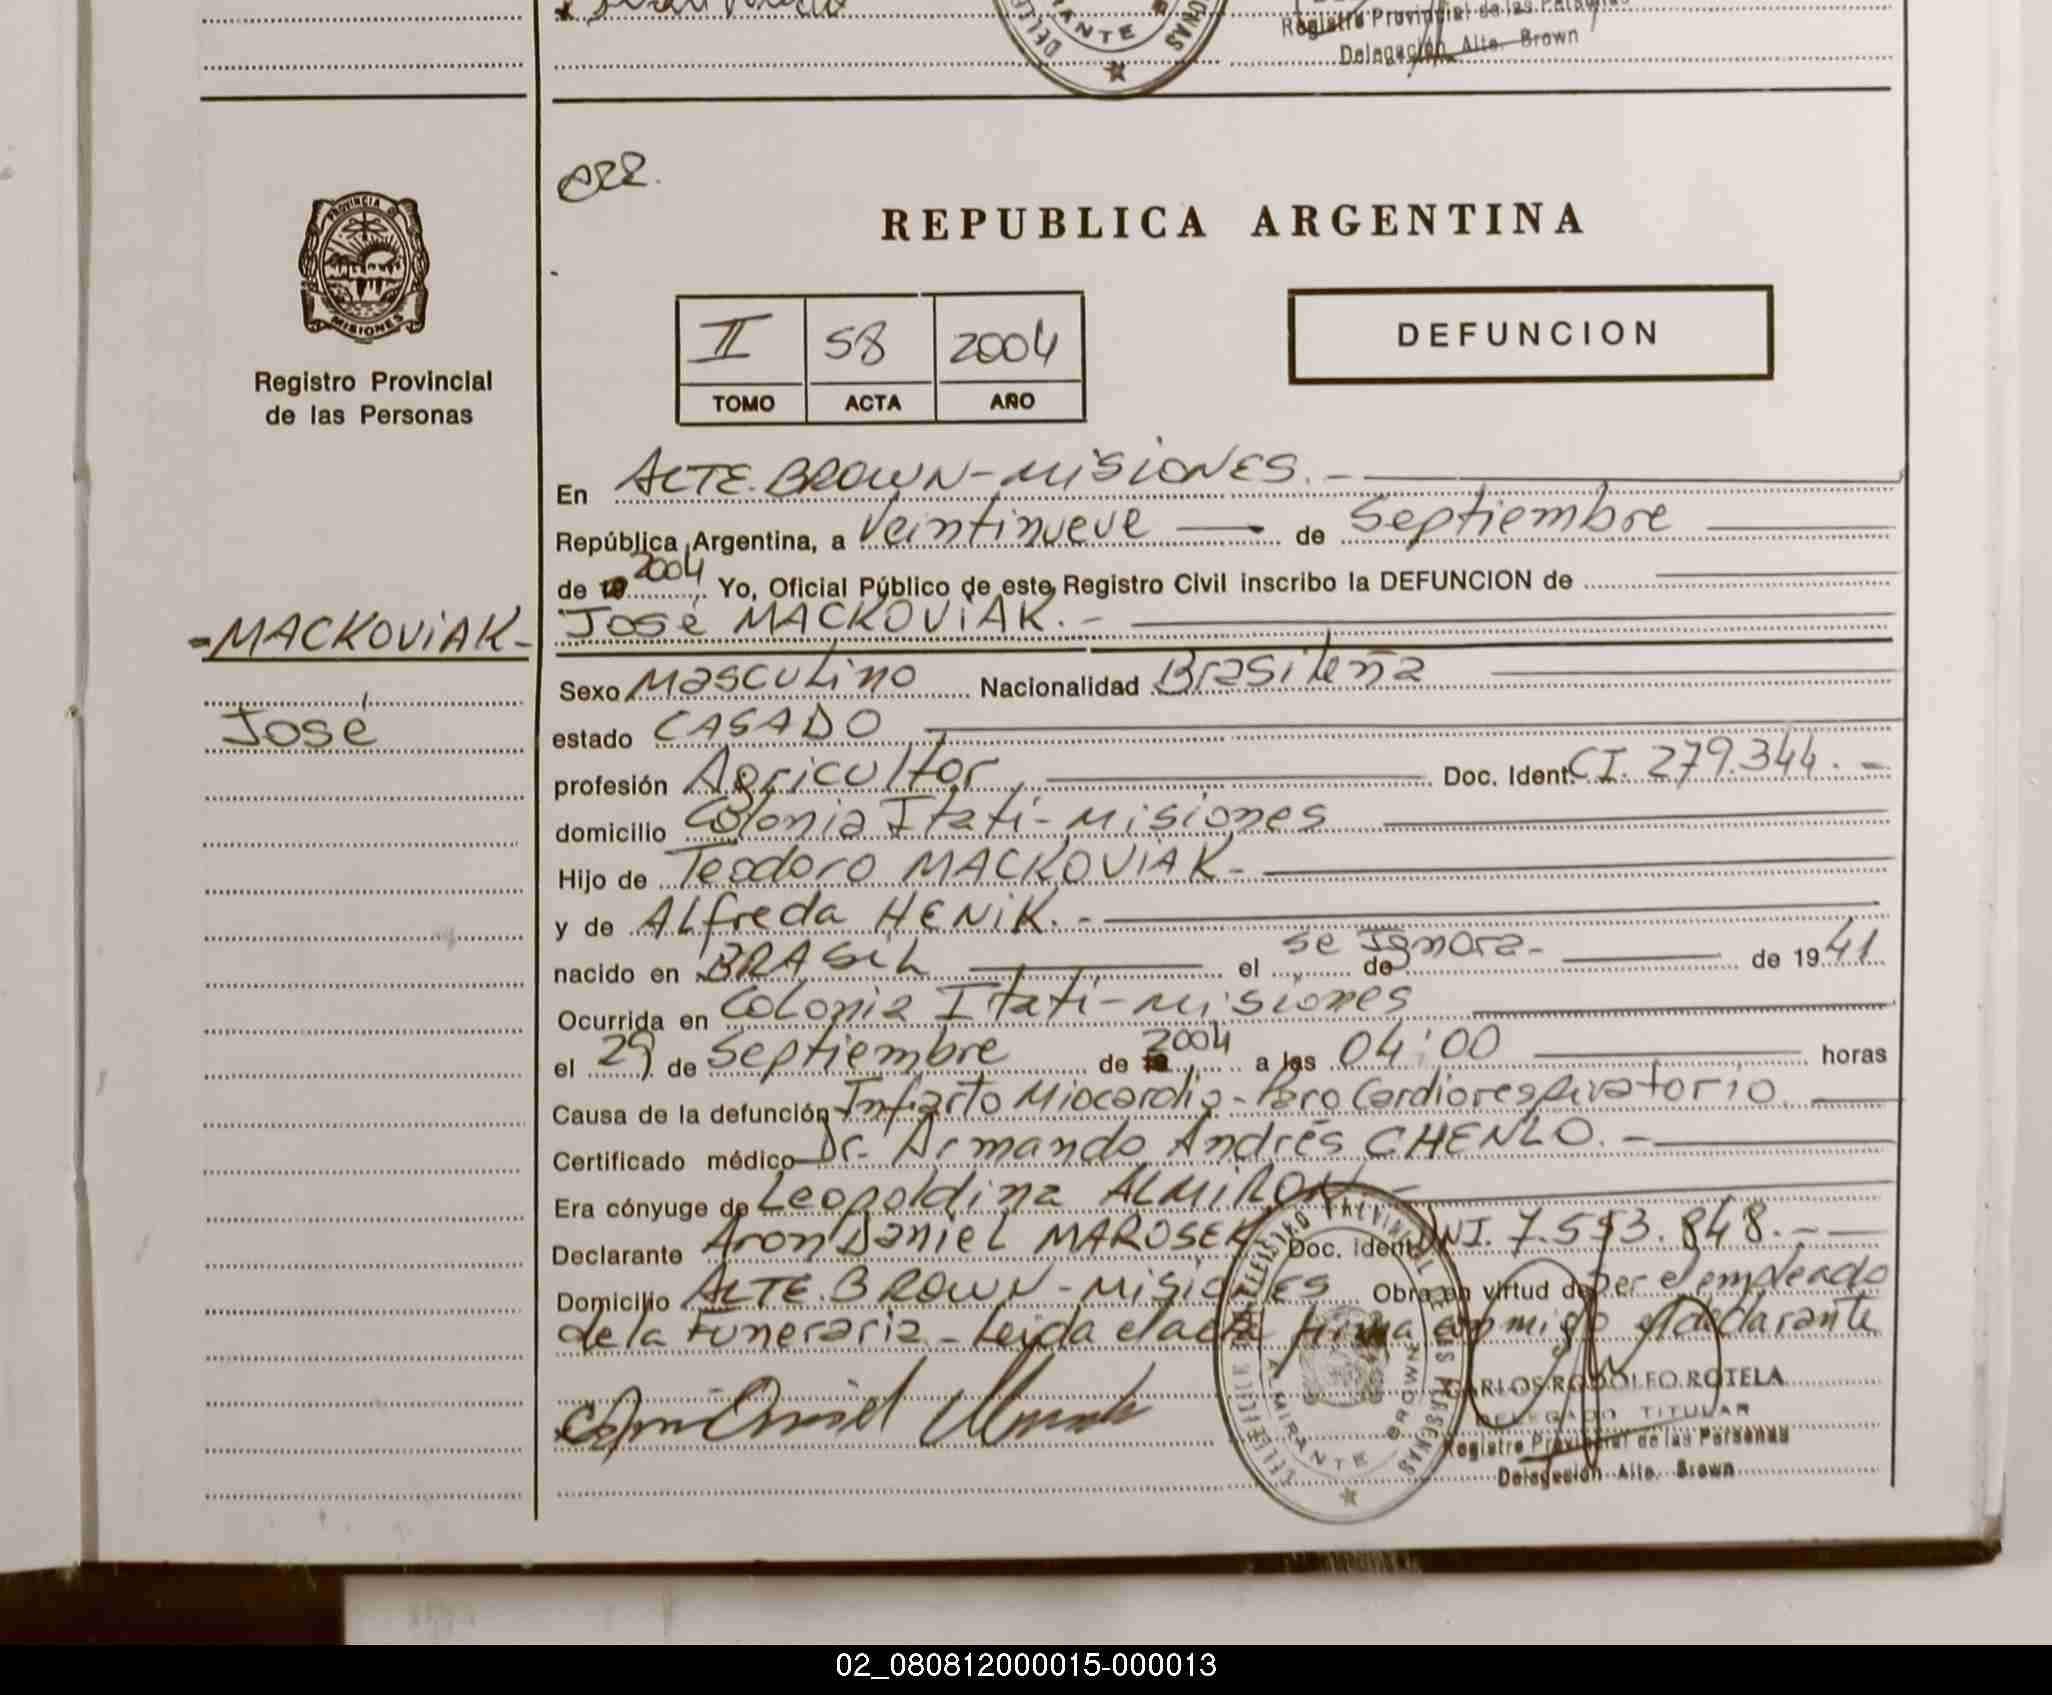 Registro Provincial de las Personas
Delegación Alte. Brown
022.
PROVINCIA DE
MISIONES
Registro Provincial
de las Personas
REPUBLICA ARGENTINA
II 58 2004
TOMO ACTA AÑO
DEFUNCION
En ALTE. BROWN - MISIONES. -
República Argentina, a Veintinueve de Septiembre
de 19 2004 Yo, Oficial Público de este Registro Civil inscribo la DEFUNCION de
José MACKOVIAK. -
- MACKOVIAK -
José
Sexo Masculino Nacionalidad Brasileña
estado CASADO
profesión Agricultor Doc. Ident. CI. 279.344. -
domicilio Colonia Itatí - Misiones
Hijo de Teodoro MACKOVIAK -
y de ALfreda HENIK. -
nacido en BRASIL el se Ignora - de de 19 41
Ocurrida en Colonia Itatí - Misiones
el 29 de Septiembre de 19 2004 a las 04:00 horas
Causa de la defunción Infarto Miocardio - Paro Cardiorespiratorio
Certificado médico Dr. Armando Andrés CHENLO. -
Era cónyuge de Leopoldina ALMIRON -
Declarante Aron Daniel MAROSEK Doc. Ident. DNI. 7.593.848. -
Domicilio ALTE. BROWN - MISIONES Obra en virtud de Ser el empleado
de la Funeraria - Leida el acta firma conmigo el declarante
CARLOS RODOLFO ROTELA
DELEGADO TITULAR
Registro Provincial de las Personas
Delegación Alte. Brown
ALMIRANTE BROWN
02_080812000015-000013